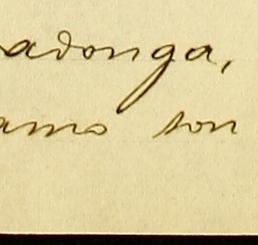 adonga,
amo son